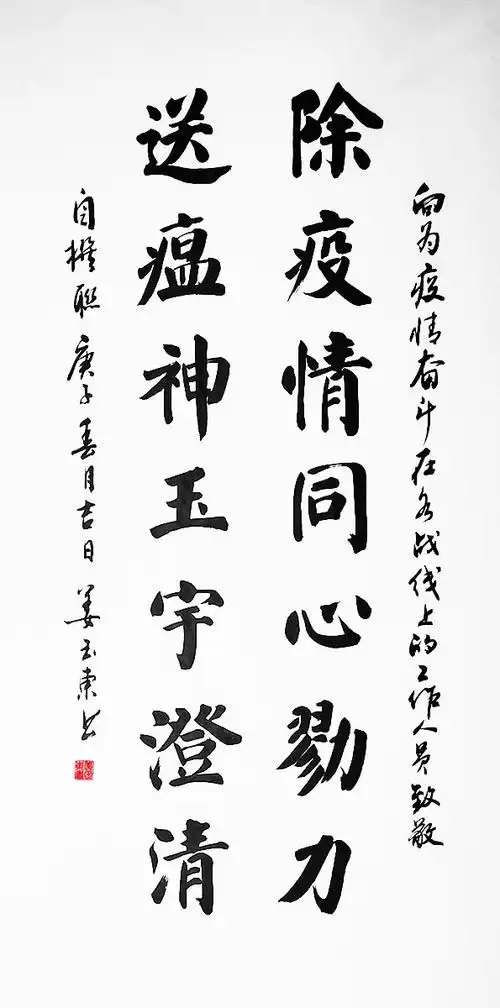 向为疫情奋斗在各战线上的工作人员致敬
除疫情同心勠力
送瘟神玉宇澄清
自撰联庚子春月吉日姜玉东书